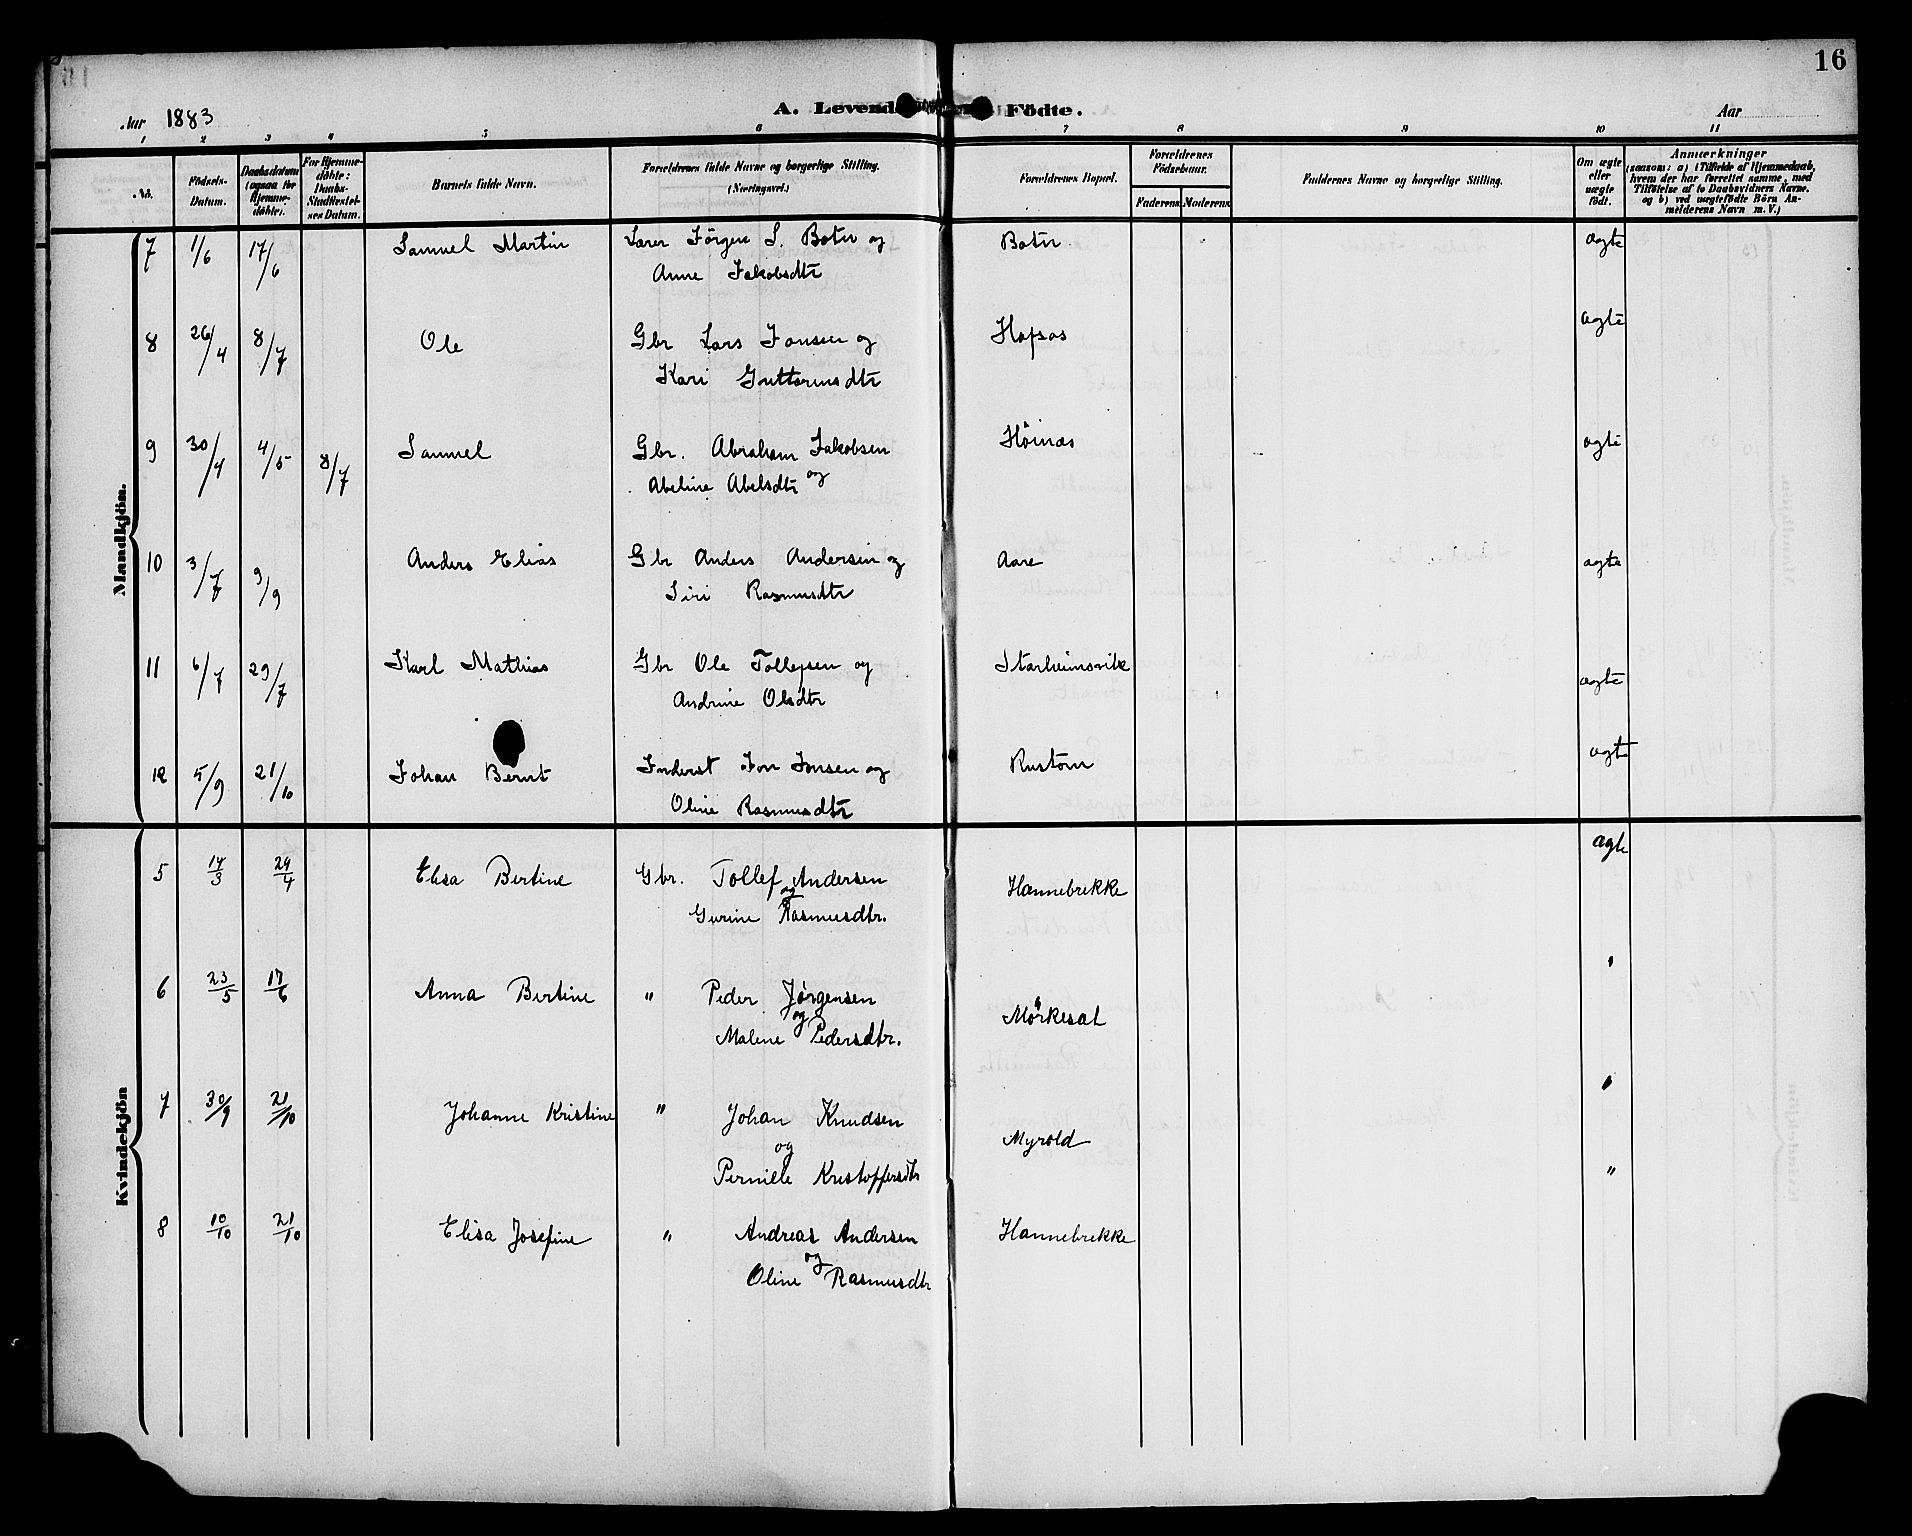 16
Aar 1883 A. Levende Födte. Aar
1 2 3 4 5 6 7 8 9 10 11
No. Födsels-Datum. Daabsdatum (ogsaa for Hjemmedöbte). For Hjemmedöbte: Daabs-Stadfæstelses Datum. Barnets fulde Navn. Forældrenes fulde Navne og borgerlige Stilling. (Næringsvei.) Forældrenes Bopæl. Forældrenes Födselsaar. Faderens Moderens Faddernes Navne og borgerlige Stilling. Om ægte eller uægte födt. Anmærkninger (saasom: a) i Tilfælde af Hjemmedaab, hvem der har forrettet samme, med Tilföielse af to Daabsvidners Navne, og b) ved uægtefödte Börn Anmelderens Navn m. V.)
Mandkjön.
7 1/6 17/6 Samuel Martin Lærer Jørgen S. Botn og Botn ægte
Anne Jakobsdtr
8 26/4 8/7 Ole Gbr Lars Jonsen og Hopsøs ægte
Kari Guttormsdtr
9 30/4 4/5 8/7 Samuel Gbr. Abraham Jakobsen Høinæs ægte
Abeline Abelsdtr og
10 3/7 9/9 Anders Elias Gbr Anders Andersen og Aare ægte
Siri Rasmusdtr
11 6/7 29/7 Karl Mathias Gbr Ole Tollefsen og Starheimsvik ægte
Andrine Olsdtr
12 5/9 21/10 Johan Bernt Inderst Jon Jonsen og Rustøen ægte
Oline Rasmusdtr
Kvindekjön
5 14/3 29/4 Elisa Bertine Gbr. Tollef Andersen Hannebrekke ægte
og
Gurine Rasmusdtr.
6 23/5 17/6 Anna Bertine " Peder Jørgensen Mørkesæt "
og
Malene Pedersdtr.
7 30/9 21/10 Johanne Kristine " Johan Knudsen Myrold "
og
Pernille Kristoffersdtr "
8 10/10 21/10 Elisa Josefine " Andreas Andersen Hannebrekke
og
Oline Rasmusdtr